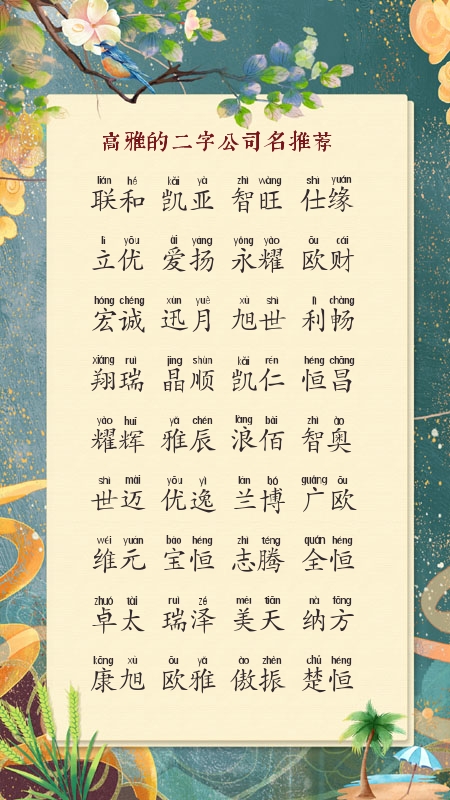 高雅的二字公司名推荐
lián hé kǎi yà zhì wàng shì yuán
联和 凯亚 智旺 仕缘
lì yōu ài yáng yǒng yào ōu cái
立优 爱扬 永耀 欧财
hóng chéng xùn yuè xù shì lì chàng
宏诚 迅月 旭世 利畅
xiáng ruì jīng shùn kǎi rén héng chāng
翔瑞 晶顺 凯仁 恒昌
yào huī yǎ chén làng bǎi zhì ào
耀辉 雅辰 浪佰 智奥
shì mài yōu yì lán bó guǎng ōu
世迈 优逸 兰博 广欧
wéi yuán bǎo héng zhì téng quán héng
维元 宝恒 志腾 全恒
zhuó tài ruì zé měi tiān nà fāng
卓太 瑞泽 美天 纳方
kāng xù ōu yǎ ào zhèn chǔ héng
康旭 欧雅 傲振 楚恒